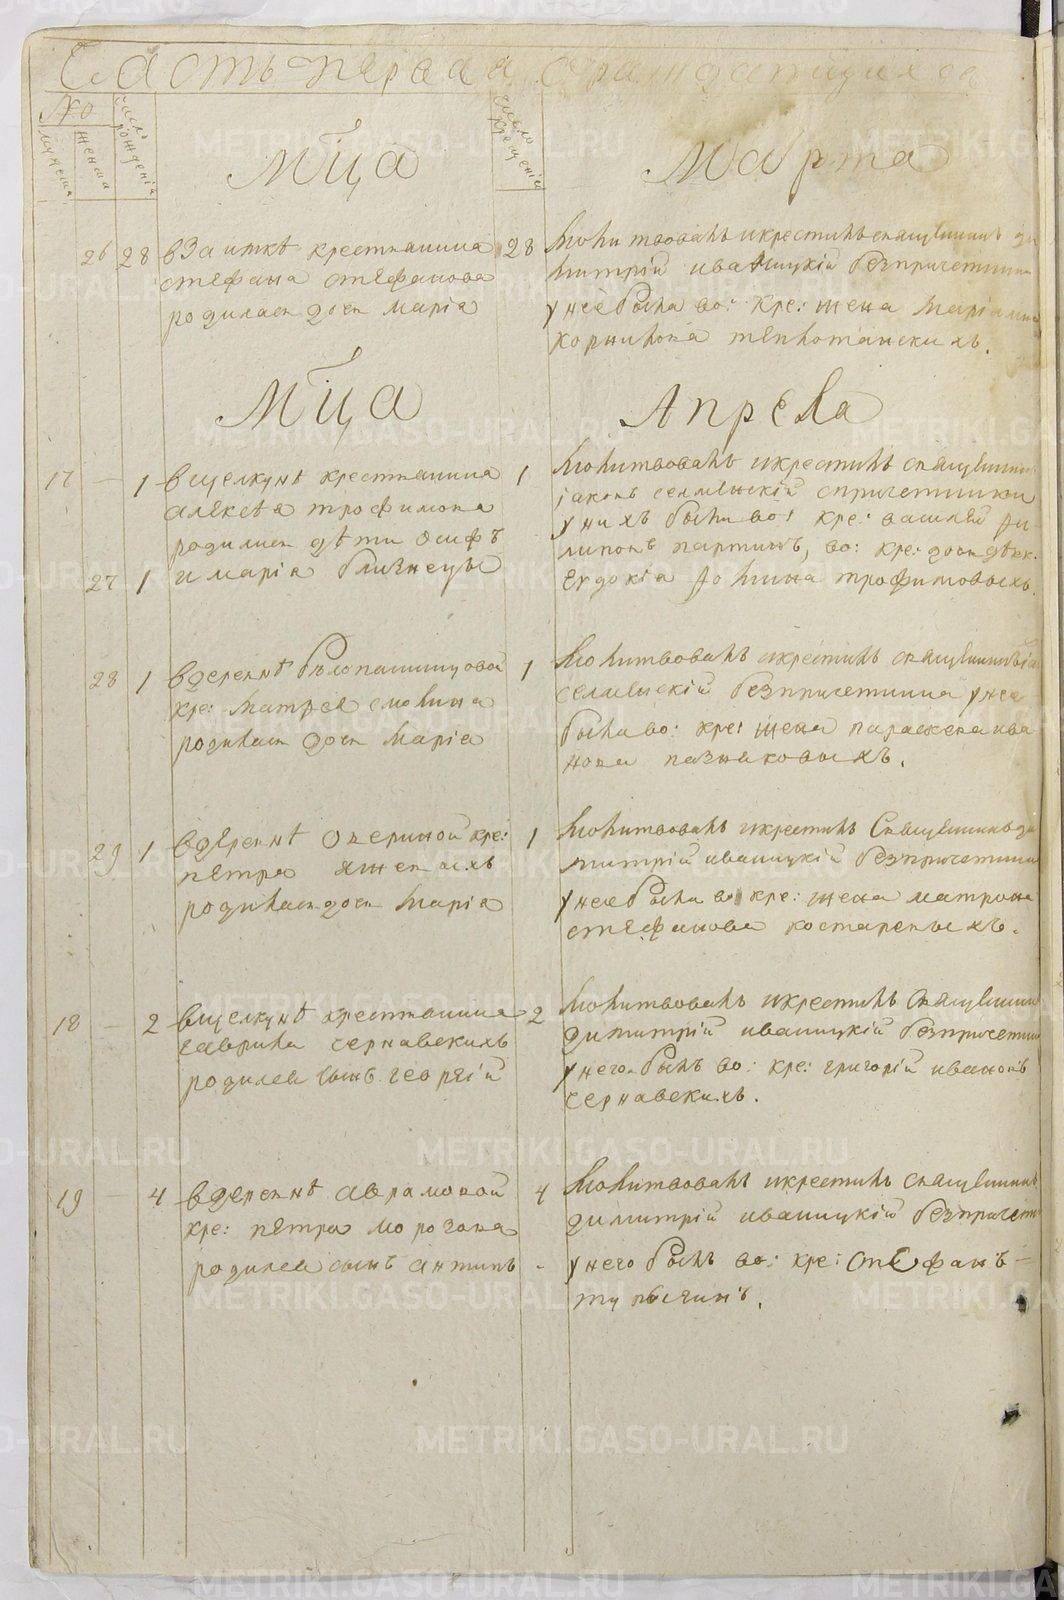 Часть первая о раждающихся
№
мужеска
женска
число рожденій
Мца
число крещенія
Марта
26 28 вЗаимкѣ крестьянина
стефана стефанова
родилась дочь марія
28 молитвовалъ икрестилъ священникъ ди
митрій иваницкій безпричетника
унеѣ была во: кре: жена
корнилова
Мца
Апреля
17 — 1 вщелкунѣ крестьянина
алексѣя трофимова
родились дѣти осифъ
27 1 имарія близнецы
1 молитвовалъ икрестилъ священникъ
іаковъ селменскій спричетники
унихъ были во: кре: василей фи-
липовъ партинъ, во: кре: дочь дѣвк:
евдокіа фомина трофимовыхъ.
28 1 вдеревнѣ белопашинцовой
кре: матфея смолина
родилась дочь марія
1 молитвовалъ икрестилъ священникъ
селменскій безпричетника унея
была во: кре: жена параскева ива
нова казаковыхъ.
29 1 вдеревнѣ кре:
петра
родилась дочь марія
1 молитвовалъ икрестилъ священникъ ди
митрій иваницкій безпричетника
унея была во: кре: жена матрона
стефанова костаревыхъ.
18 — 2 вщелкунѣ крестьянина
гаврила чернавскихъ
родился сынъ георгій
2 молитвовалъ икрестилъ священникъ
димитрій иваницкій безпричетника
унего былъ во: кре: григорій ивановъ
чернавскихъ.
19 4 вдеревнѣ аврамовой
кре: петра морозова
родился сынъ антипъ
4 молитвовалъ икрестилъ священникъ
димитрій иваницкій безпричетн
унего былъ во: кре: стефанъ
METRIKI.GASO-URAL.RU